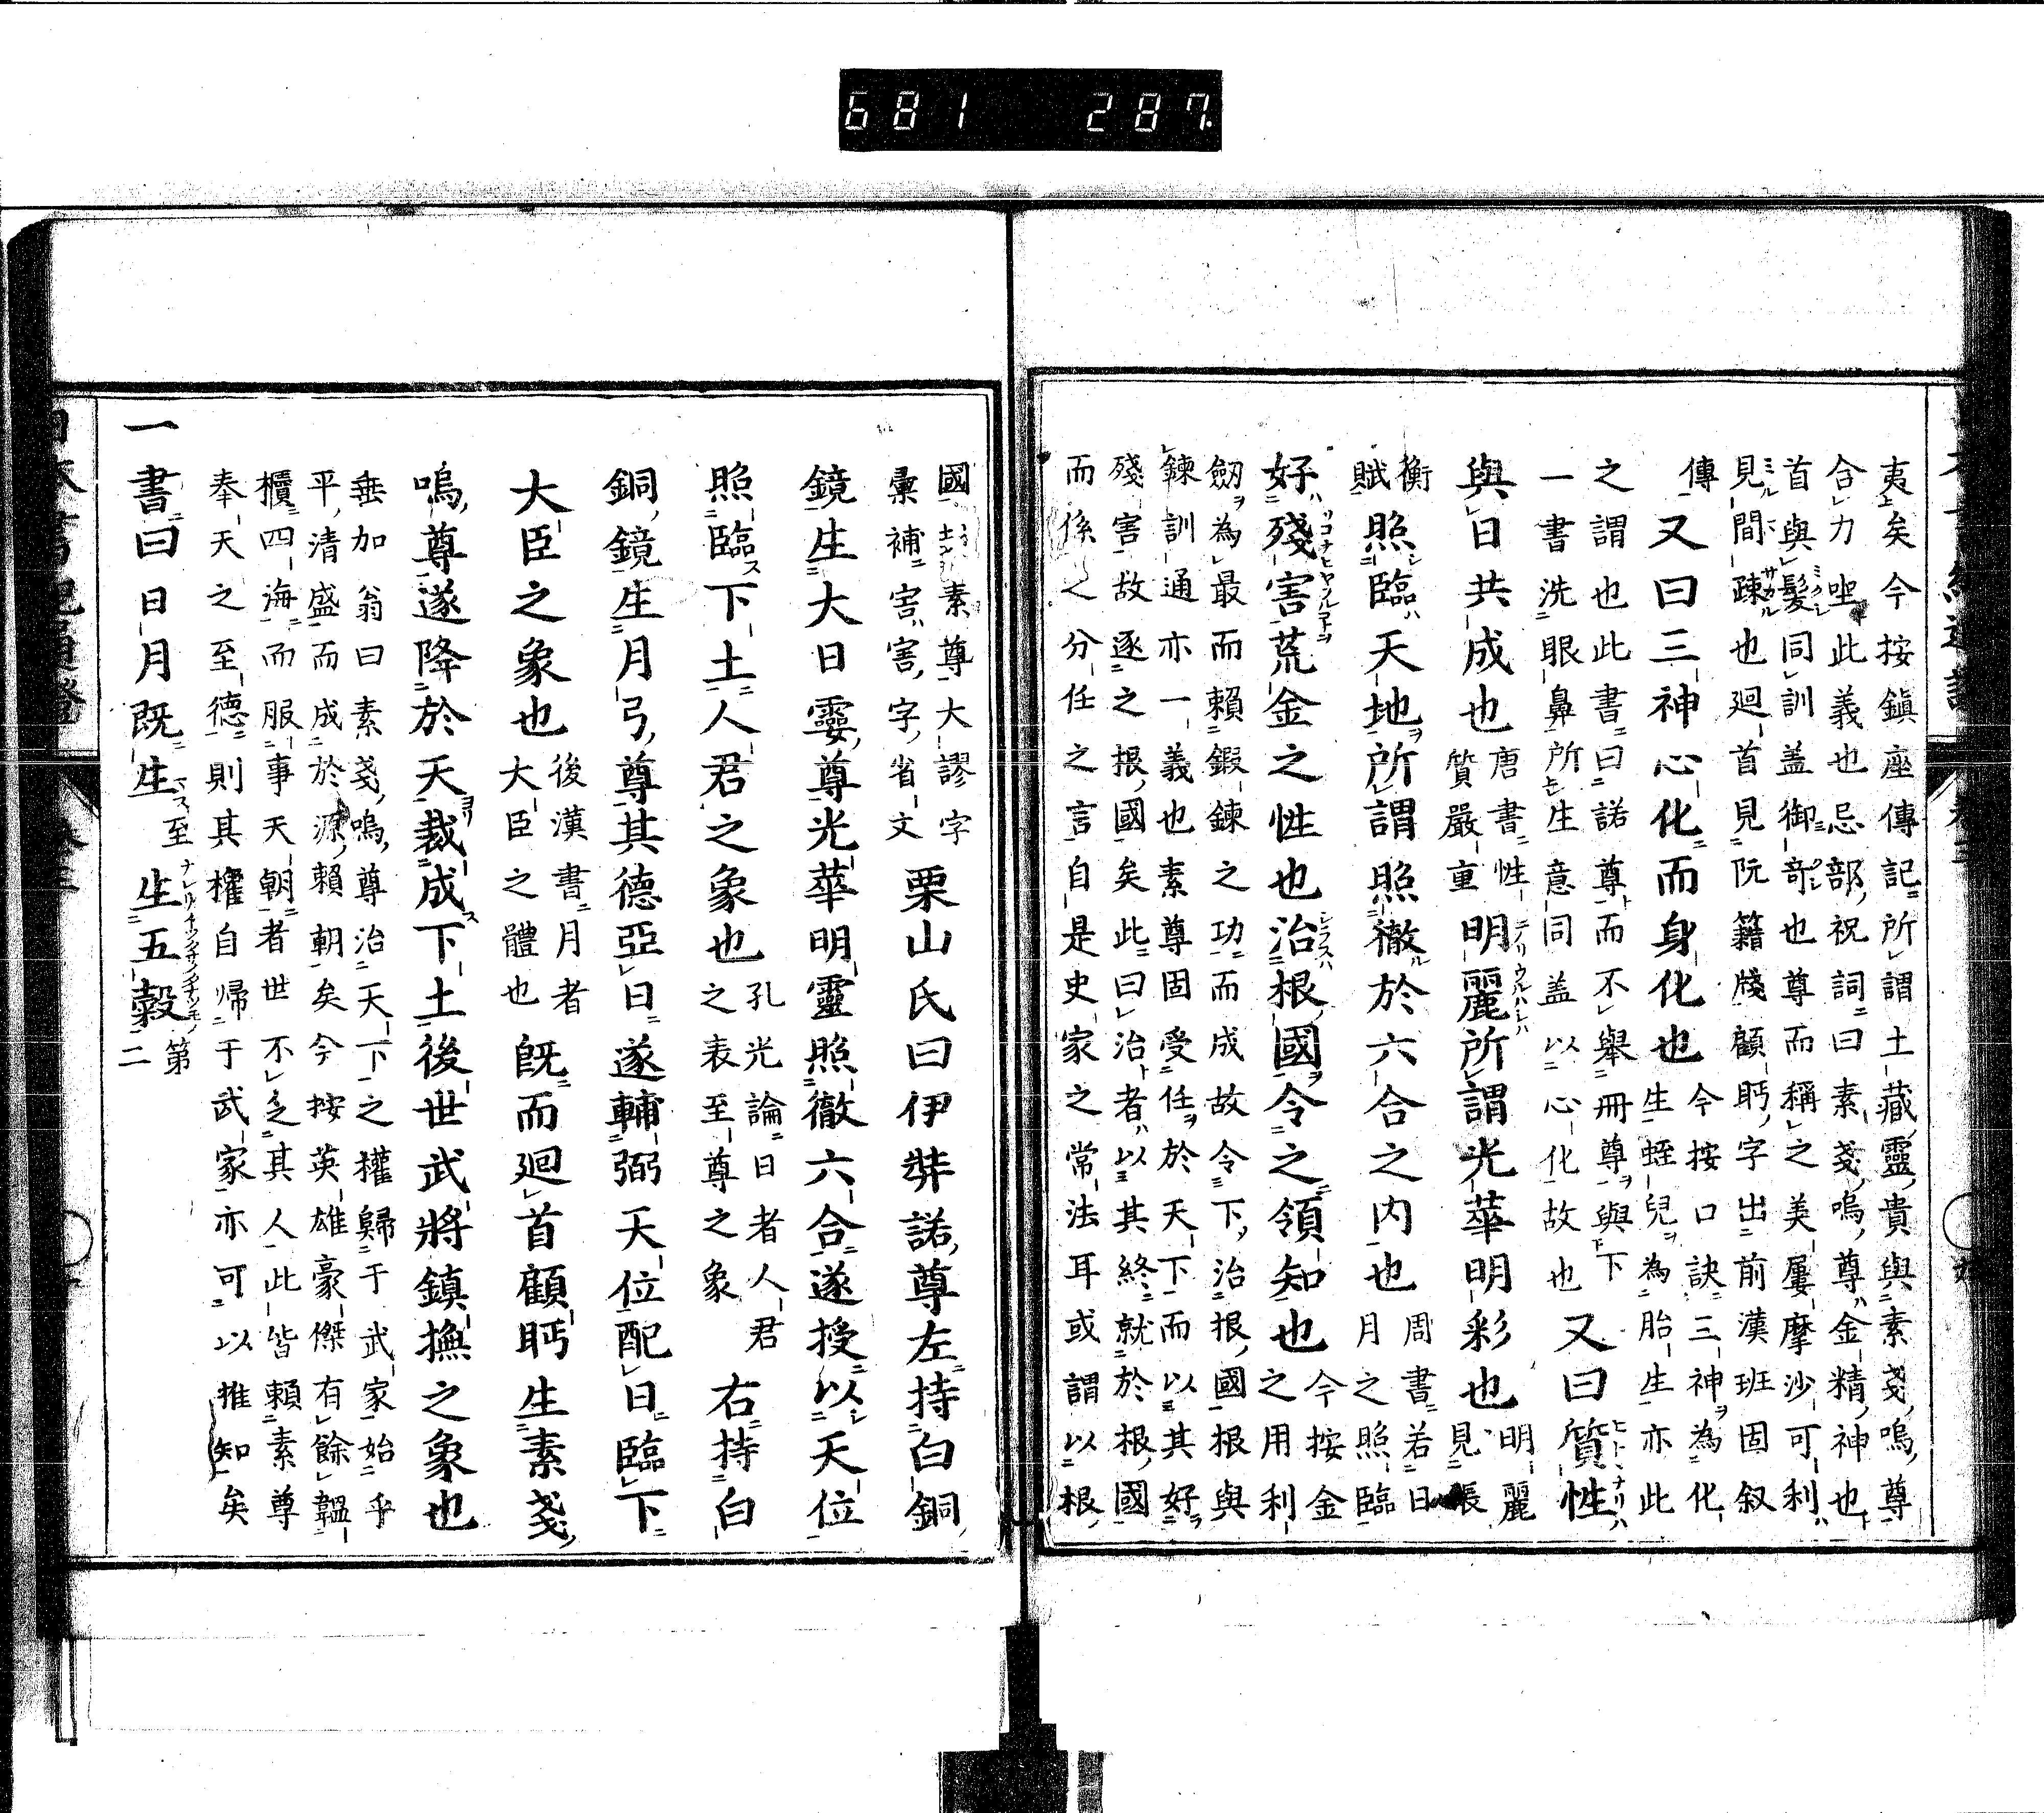 681 287
夷矣今按鎮座傳記所謂土藏靈貴與素戔嗚尊
合力坐此義也忌部祝詞曰素戔嗚尊金精神也
首與髮同訓盖御奇也尊而稱之美屢摩沙可利
見間疎也廻首見阮籍牋顧眄字出前漢班固叙
傳
又曰三神心化而身化也
今按口訣三神為化
生蛭兒為胎生亦此
之謂也此書曰諾尊而不舉冊尊與下
一書洗眼鼻所生意同盖以心化故也
又曰質性
與日共成也
唐書性
質嚴重
明麗所謂光華明彩也
明麗
見張
衡
賦
照臨天地所謂照徹於六合之内也
周書若日
月之照臨
好殘害荒金之性也治根國令之領知也
今按金
之用利
劒為最而賴鍜鍊之功而成故令下治根國根與
鍊訓通亦一義也素尊固受任於天下而以其好
殘害故逐之根國矣此曰治者以其終就於根國
而係之分任之言自是史家之常法耳或謂以根
國
素尊大謬字
彙補害害字省文
栗山氏曰伊弉諾尊左持白銅
鏡生大日孁尊光華明靈照徹六合遂授以天位
照臨下土人君之象也
孔光論日者人君
之表至尊之象
右持白
銅鏡生月弓尊其德亞日遂輔弼天位配日臨下
大臣之象也
後漢書月者
大臣之體也
既而廻首顧眄生素戔
嗚尊遂降於天裁成下土後世武將鎮撫之象也
垂加翁曰素戔嗚尊治天下之權歸于武家始乎
平清盛而成於源賴朝矣今按英雄豪傑有餘韞
櫃四海而服事天朝者世不乏其人此皆賴素尊
奉天之至德則其權自歸于武家亦可以推知矣
一書曰日月既生
至
生五穀
第
二